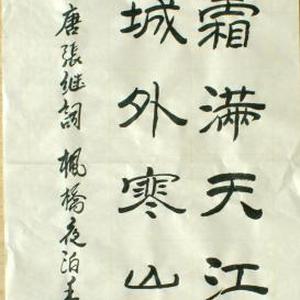 霜滿天江
城外寒山
唐張继詞楓橋夜泊